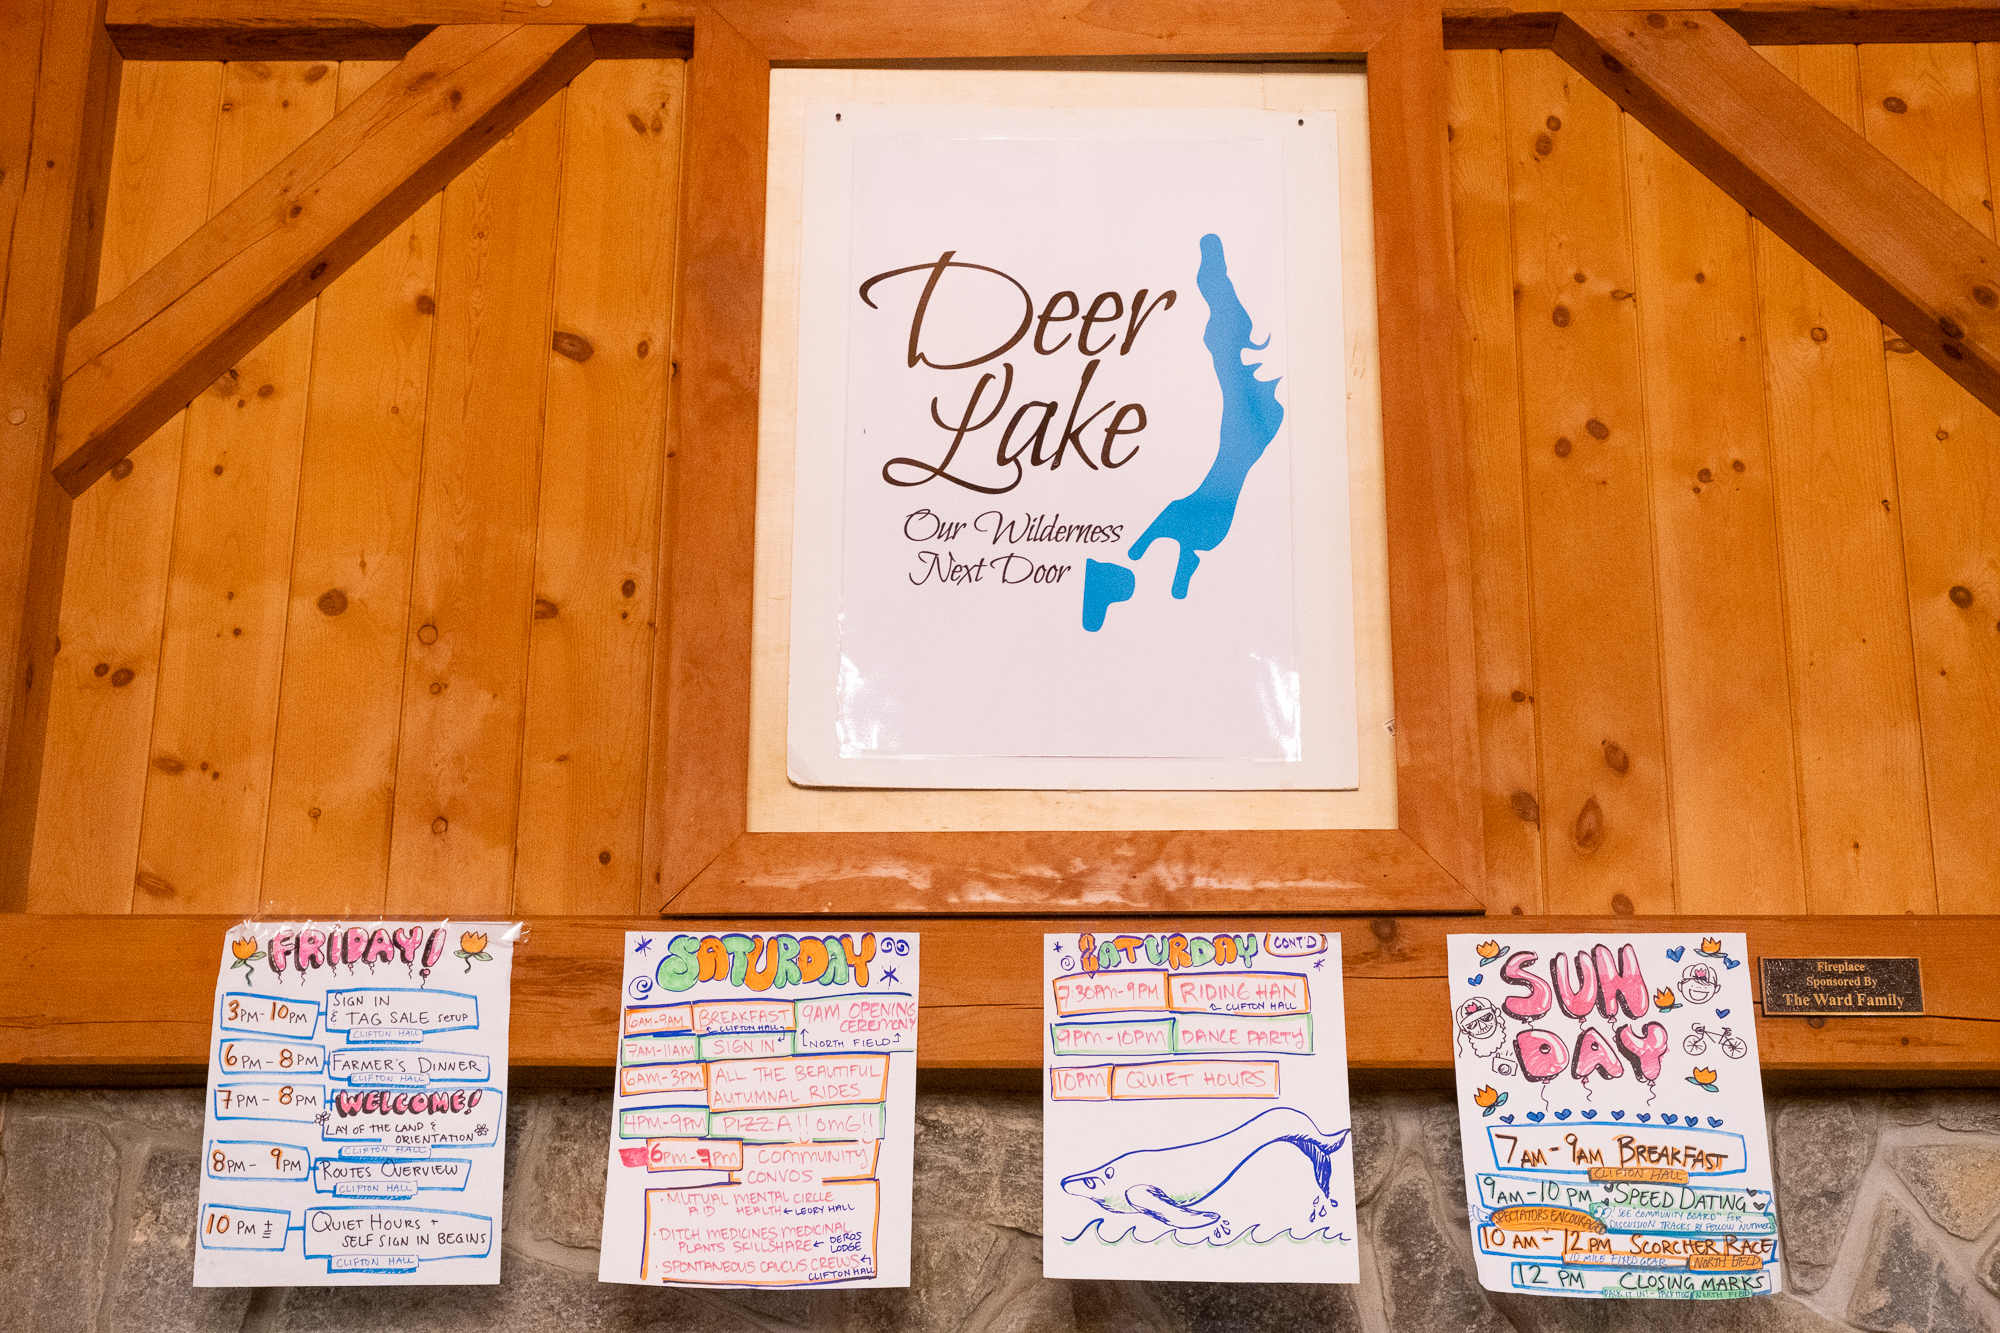 Deer
Lake
Our Wilderness
Next Door
Fireplace
Sponsored By
The Ward Family
FRIDAY!
3PM-10PM
SIGN IN
& TAG SALE SETUP
CLIFTON HALL
6PM-8PM
FARMER'S DINNER
CLIFTON HALL
7PM-8PM
WELCOME!
LAY OF THE LAND &
ORIENTATION
CLIFTON HALL
8PM-9PM
ROUTES OVERVIEW
CLIFTON HALL
10 PM ±
QUIET HOURS +
SELF SIGN IN BEGINS
CLIFTON HALL
SATURDAY
6AM-9AM
BREAKFAST
CLIFTON HALL
9AM OPENING
CEREMONY
NORTH FIELD
7AM-11AM
SIGN IN
6AM-3PM
ALL THE BEAUTIFUL
AUTUMNAL RIDES
4PM-9PM
PIZZA!! OMG!!
6PM-9PM
COMMUNITY
CONVOS
• MUTUAL MENTAL CIRCLE
AID HEALTH ← LEORY HALL
• DITCH MEDICINES: MEDICINAL
PLANTS SKILLSHARE ← DEROS
LODGE
• SPONTANEOUS CAUCUS CREWS
CLIFTON HALL
SATURDAY CONT'D
7:30PM-9PM
RIDING HAN
CLIFTON HALL
9PM-10PM
DANCE PARTY
10PM
QUIET HOURS
SUN
DAY
7AM-9AM BREAKFAST
CLIFTON HALL
9AM-10PM SPEED DATING
"SEE COMMUNITY BOARD" FOR
DISCUSSION TRACKS BY FELLOW
SPECTATORS ENCOURAGED
10AM-12PM SCORCHER RACE
10 MILE FIXED GEAR
NORTH FIELD
12 PM CLOSING MARKS
PACK IT IN!
NORTH FIELD